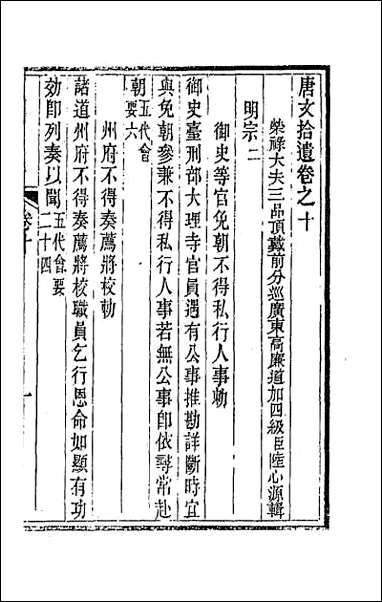 唐文拾遺卷之十
榮祿大夫三品頂戴前分巡廣東高廉道加四級臣陸心源輯
明宗二
御史等官免朝不得私行人事勅
御史臺刑部大理寺官員遇有公事推勘詳斷時宜
與免朝參兼不得私行人事若無公事卽依尋常赴
朝五代會要六
州府不得奏薦將校勅
諸道州府不得奏薦將校職員乞行恩命如顯有功
効卽列奏以聞五代會要二十四
卷十
一